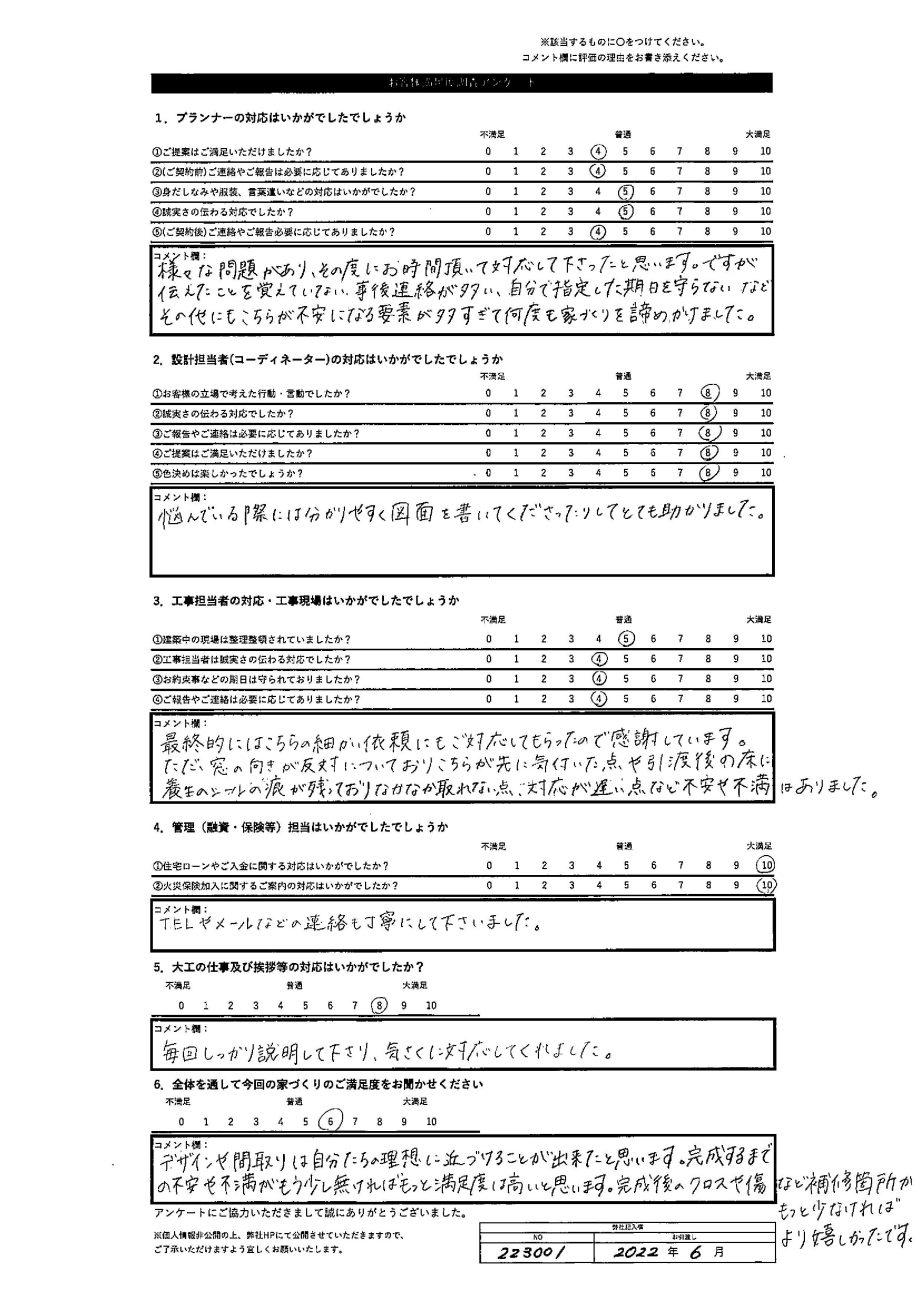 ※該当するものに〇をつけてください。
コメント欄に評価の理由をお書き添えください。
お客様満足度調査アンケート
1．プランナーの対応はいかがでしたでしょうか
不満足 普通 大満足
①ご提案はご満足いただけましたか？ 0 1 2 3 4 5 6 7 8 9 10
②(ご契約前)ご連絡やご報告は必要に応じてありましたか？ 0 1 2 3 4 5 6 7 8 9 10
③身だしなみや服装、言葉遣いなどの対応はいかがでしたか？ 0 1 2 3 4 5 6 7 8 9 10
④誠実さの伝わる対応でしたか？ 0 1 2 3 4 5 6 7 8 9 10
⑤(ご契約後)ご連絡やご報告必要に応じてありましたか？ 0 1 2 3 4 5 6 7 8 9 10
コメント欄：
様々な問題があり、その度にお時間頂いて対応して下さったと思います。ですが
伝えたことを覚えていない、事後連絡が多い、自分で指定した期日を守らない など
その他にもこちらが不安になる要素が多すぎて何度も家づくりを諦めかけました。
2．設計担当者(コーディネーター)の対応はいかがでしたでしょうか
不満足 普通 大満足
①お客様の立場で考えた行動・言動でしたか？ 0 1 2 3 4 5 6 7 8 9 10
②誠実さの伝わる対応でしたか？ 0 1 2 3 4 5 6 7 8 9 10
③ご報告やご連絡は必要に応じてありましたか？ 0 1 2 3 4 5 6 7 8 9 10
④ご提案はご満足いただけましたか？ 0 1 2 3 4 5 6 7 8 9 10
⑤色決めは楽しかったでしょうか？ 0 1 2 3 4 5 6 7 8 9 10
コメント欄：
悩んでいる際には分かりやすく図面を書いてくださったりしてとても助かりました。
3．工事担当者の対応・工事現場はいかがでしたでしょうか
不満足 普通 大満足
①建築中の現場は整理整頓されていましたか？ 0 1 2 3 4 5 6 7 8 9 10
②工事担当者は誠実さの伝わる対応でしたか？ 0 1 2 3 4 5 6 7 8 9 10
③お約束事などの期日は守られておりましたか？ 0 1 2 3 4 5 6 7 8 9 10
④ご報告やご連絡は必要に応じてありましたか？ 0 1 2 3 4 5 6 7 8 9 10
コメント欄：
最終的にはこちらの細かい依頼にもご対応してもらったので感謝しています。
ただ、窓の向きが反対についておりこちらが先に気付いた点や引渡後の床に
養生のシールの痕が残っておりなかなか取れない点、対応が遅い点など不安や不満はありました。
4．管理（融資・保険等）担当はいかがでしたでしょうか
不満足 普通 大満足
①住宅ローンやご入金に関する対応はいかがでしたか？ 0 1 2 3 4 5 6 7 8 9 10
②火災保険加入に関するご案内の対応はいかがでしたか？ 0 1 2 3 4 5 6 7 8 9 10
コメント欄：
TELやメールなどの連絡も丁寧にして下さいました。
5．大工の仕事及び挨拶等の対応はいかがでしたか？
不満足 普通 大満足
0 1 2 3 4 5 6 7 8 9 10
コメント欄：
毎回しっかり説明して下さり、気さくに対応してくれました。
6．全体を通して今回の家づくりのご満足度をお聞かせください
不満足 普通 大満足
0 1 2 3 4 5 6 7 8 9 10
コメント欄：
デザインや間取りは自分たちの理想に近づけることが出来たと思います。完成するまで
の不安や不満がもう少し無ければもっと満足度は高いと思います。完成後のクロスや傷など補修箇所が
もっと少なければ
より嬉しかったです。
アンケートにご協力いただきまして誠にありがとうございました。
※個人情報非公開の上、弊社HPにて公開させていただきますので、
ご了承いただけますよう宜しくお願いいたします。
弊社記入欄
NO お引渡し
223001 2022 年 6 月